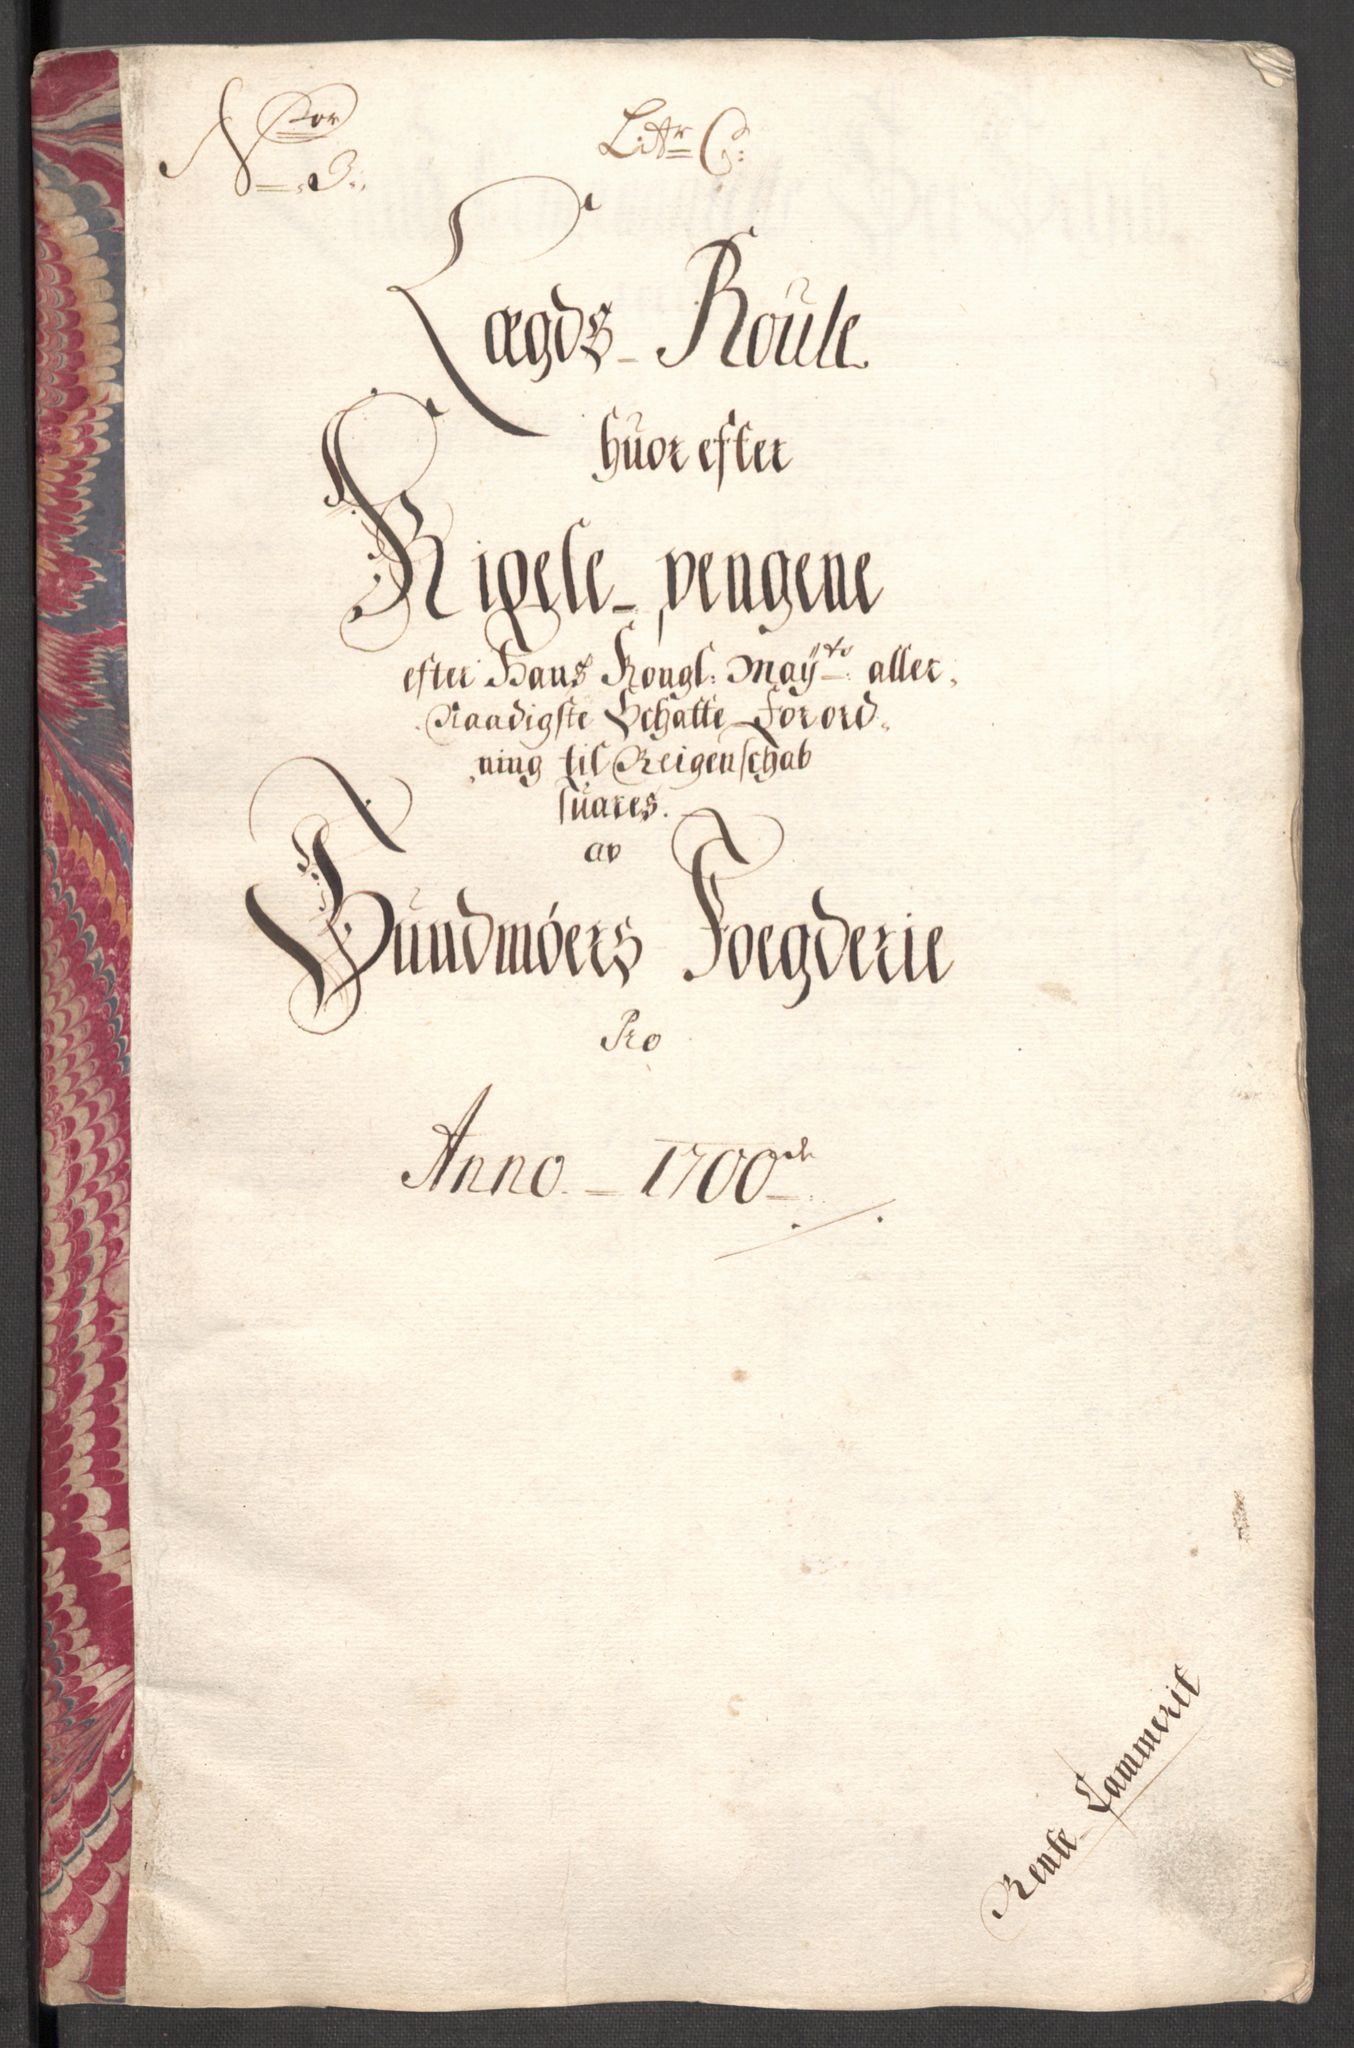 No 3.
Litr C:
Lægds-Roule
huor efter
Rigele-pengene
efter Hans Kongl: Mayts: aller,
Naadigste Schatte-Forord,
ning til Reigenschab
suares.
av
Sundmöers Foegderie
Pro
Anno-1700
Rente Cammerit